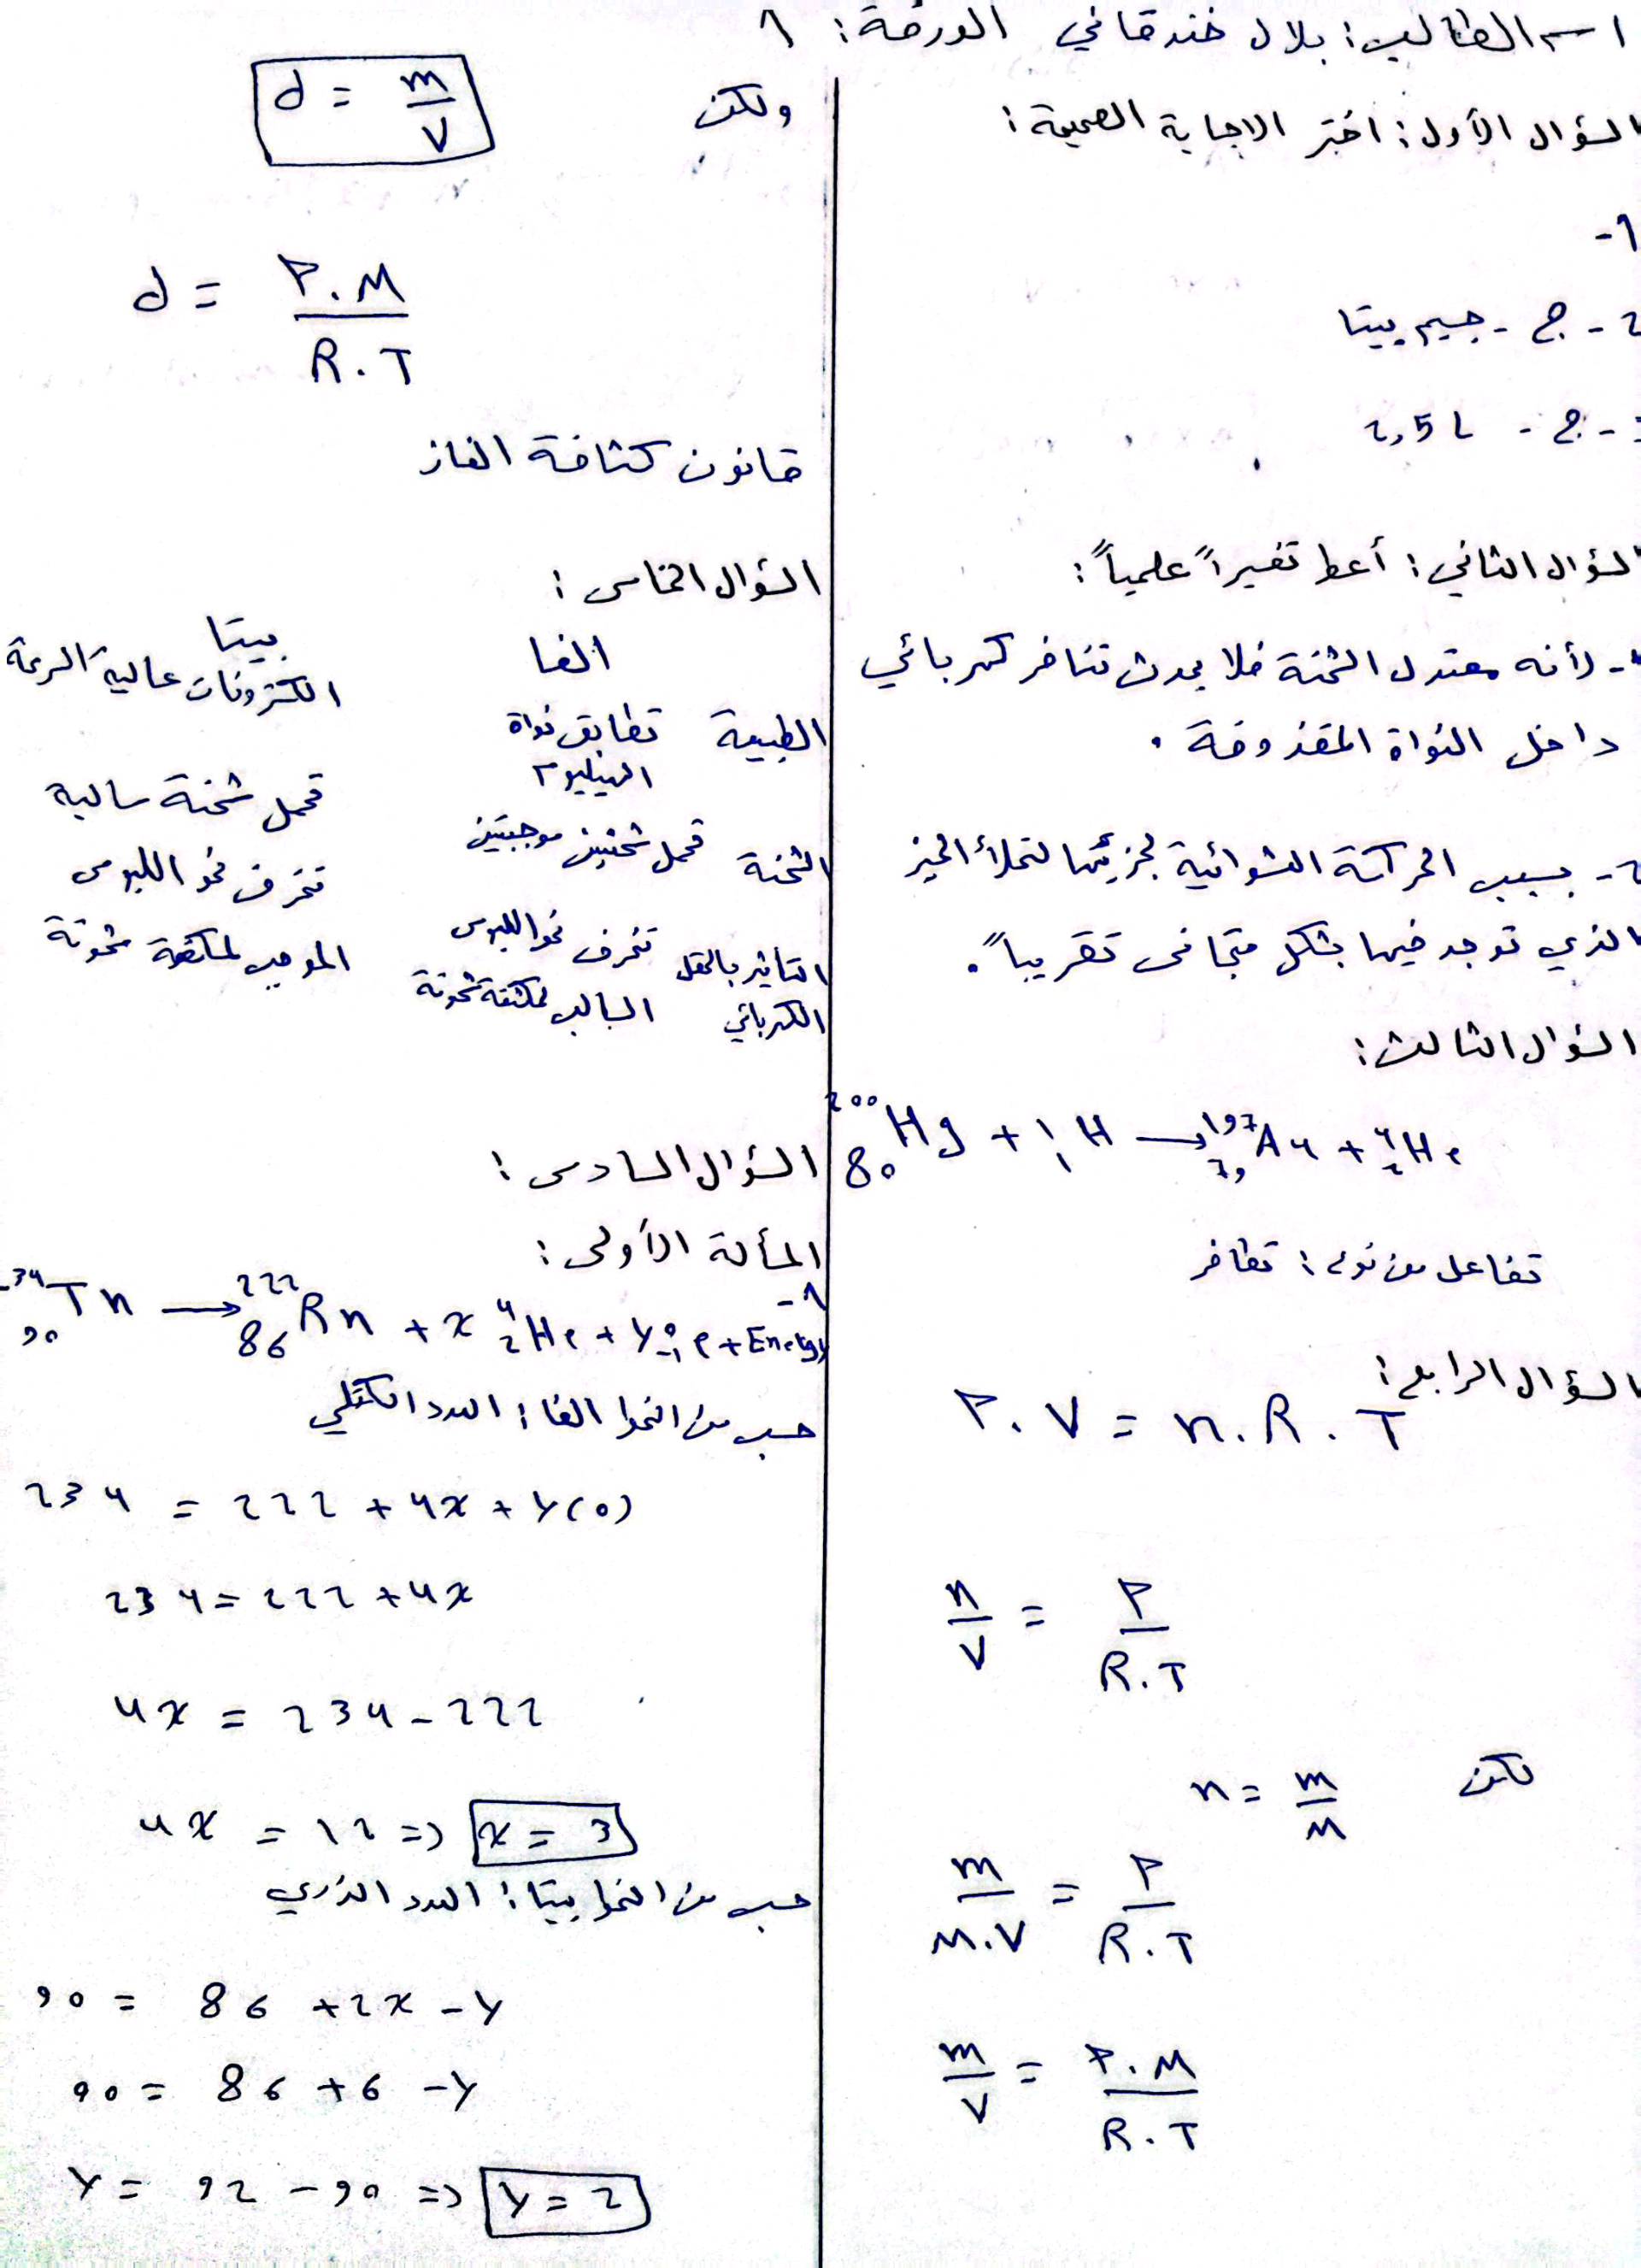 اسم الطالب: بلال خندقاني الورقة: 1
السؤال الأول: اختر الاجابة الصحيحة:
1-
2- ج - جسيم بيتا
- ج - 2,5 L
السؤال الثاني: أعط تفسيراً علمياً:
- لأنه معتدل الشحنة فلا يحدث تنافر كهربائي
داخل النواة المقذوفة.
2- بسبب الحركة العشوائية لجزيئها لتملأ الحيز
الذي توجد فيها بشكل متجانس تقريباً.
السؤال الثالث:
²⁰⁰₈₀Hg + ¹₁H → ¹⁹⁷₇₉Au + ⁴₂He
تفاعل من نوع: تطافر
السؤال الرابع:
P.V = n.R.T
n/V = P/R.T
لكن n = m/M
m/M.V = P/R.T
m/V = P.M/R.T
ولكن d = m/V
d = P.M/R.T
قانون كثافة الغاز
السؤال الخامس:
الفا بيتا
الطبيعة تطابق نواة الهيليوم الكترونات عالية السرعة
الشحنة تحمل شحنتين موجبتين تحمل شحنة سالبة
التاثير بالحقل الكهربائي تنحرف نحو اللبوس السالب لمكثفة مشحونة تنحرف نحو اللبوس الموجب لمكثفة مشحونة
السؤال السادس:
المسألة الأولى:
1-
²³⁴₉₀Th → ²²²₈₆Rn + x ⁴₂He + y ⁰₋₁e + Energy
حسب من الخوا الفا: العدد الكتلي
234 = 222 + 4x + y(0)
234 = 222 + 4x
4x = 234 - 222
4x = 12 => x = 3
حسب من الخوا بيتا: العدد الذري
90 = 86 + 2x - y
90 = 86 + 6 - y
y = 92 - 90 => y = 2